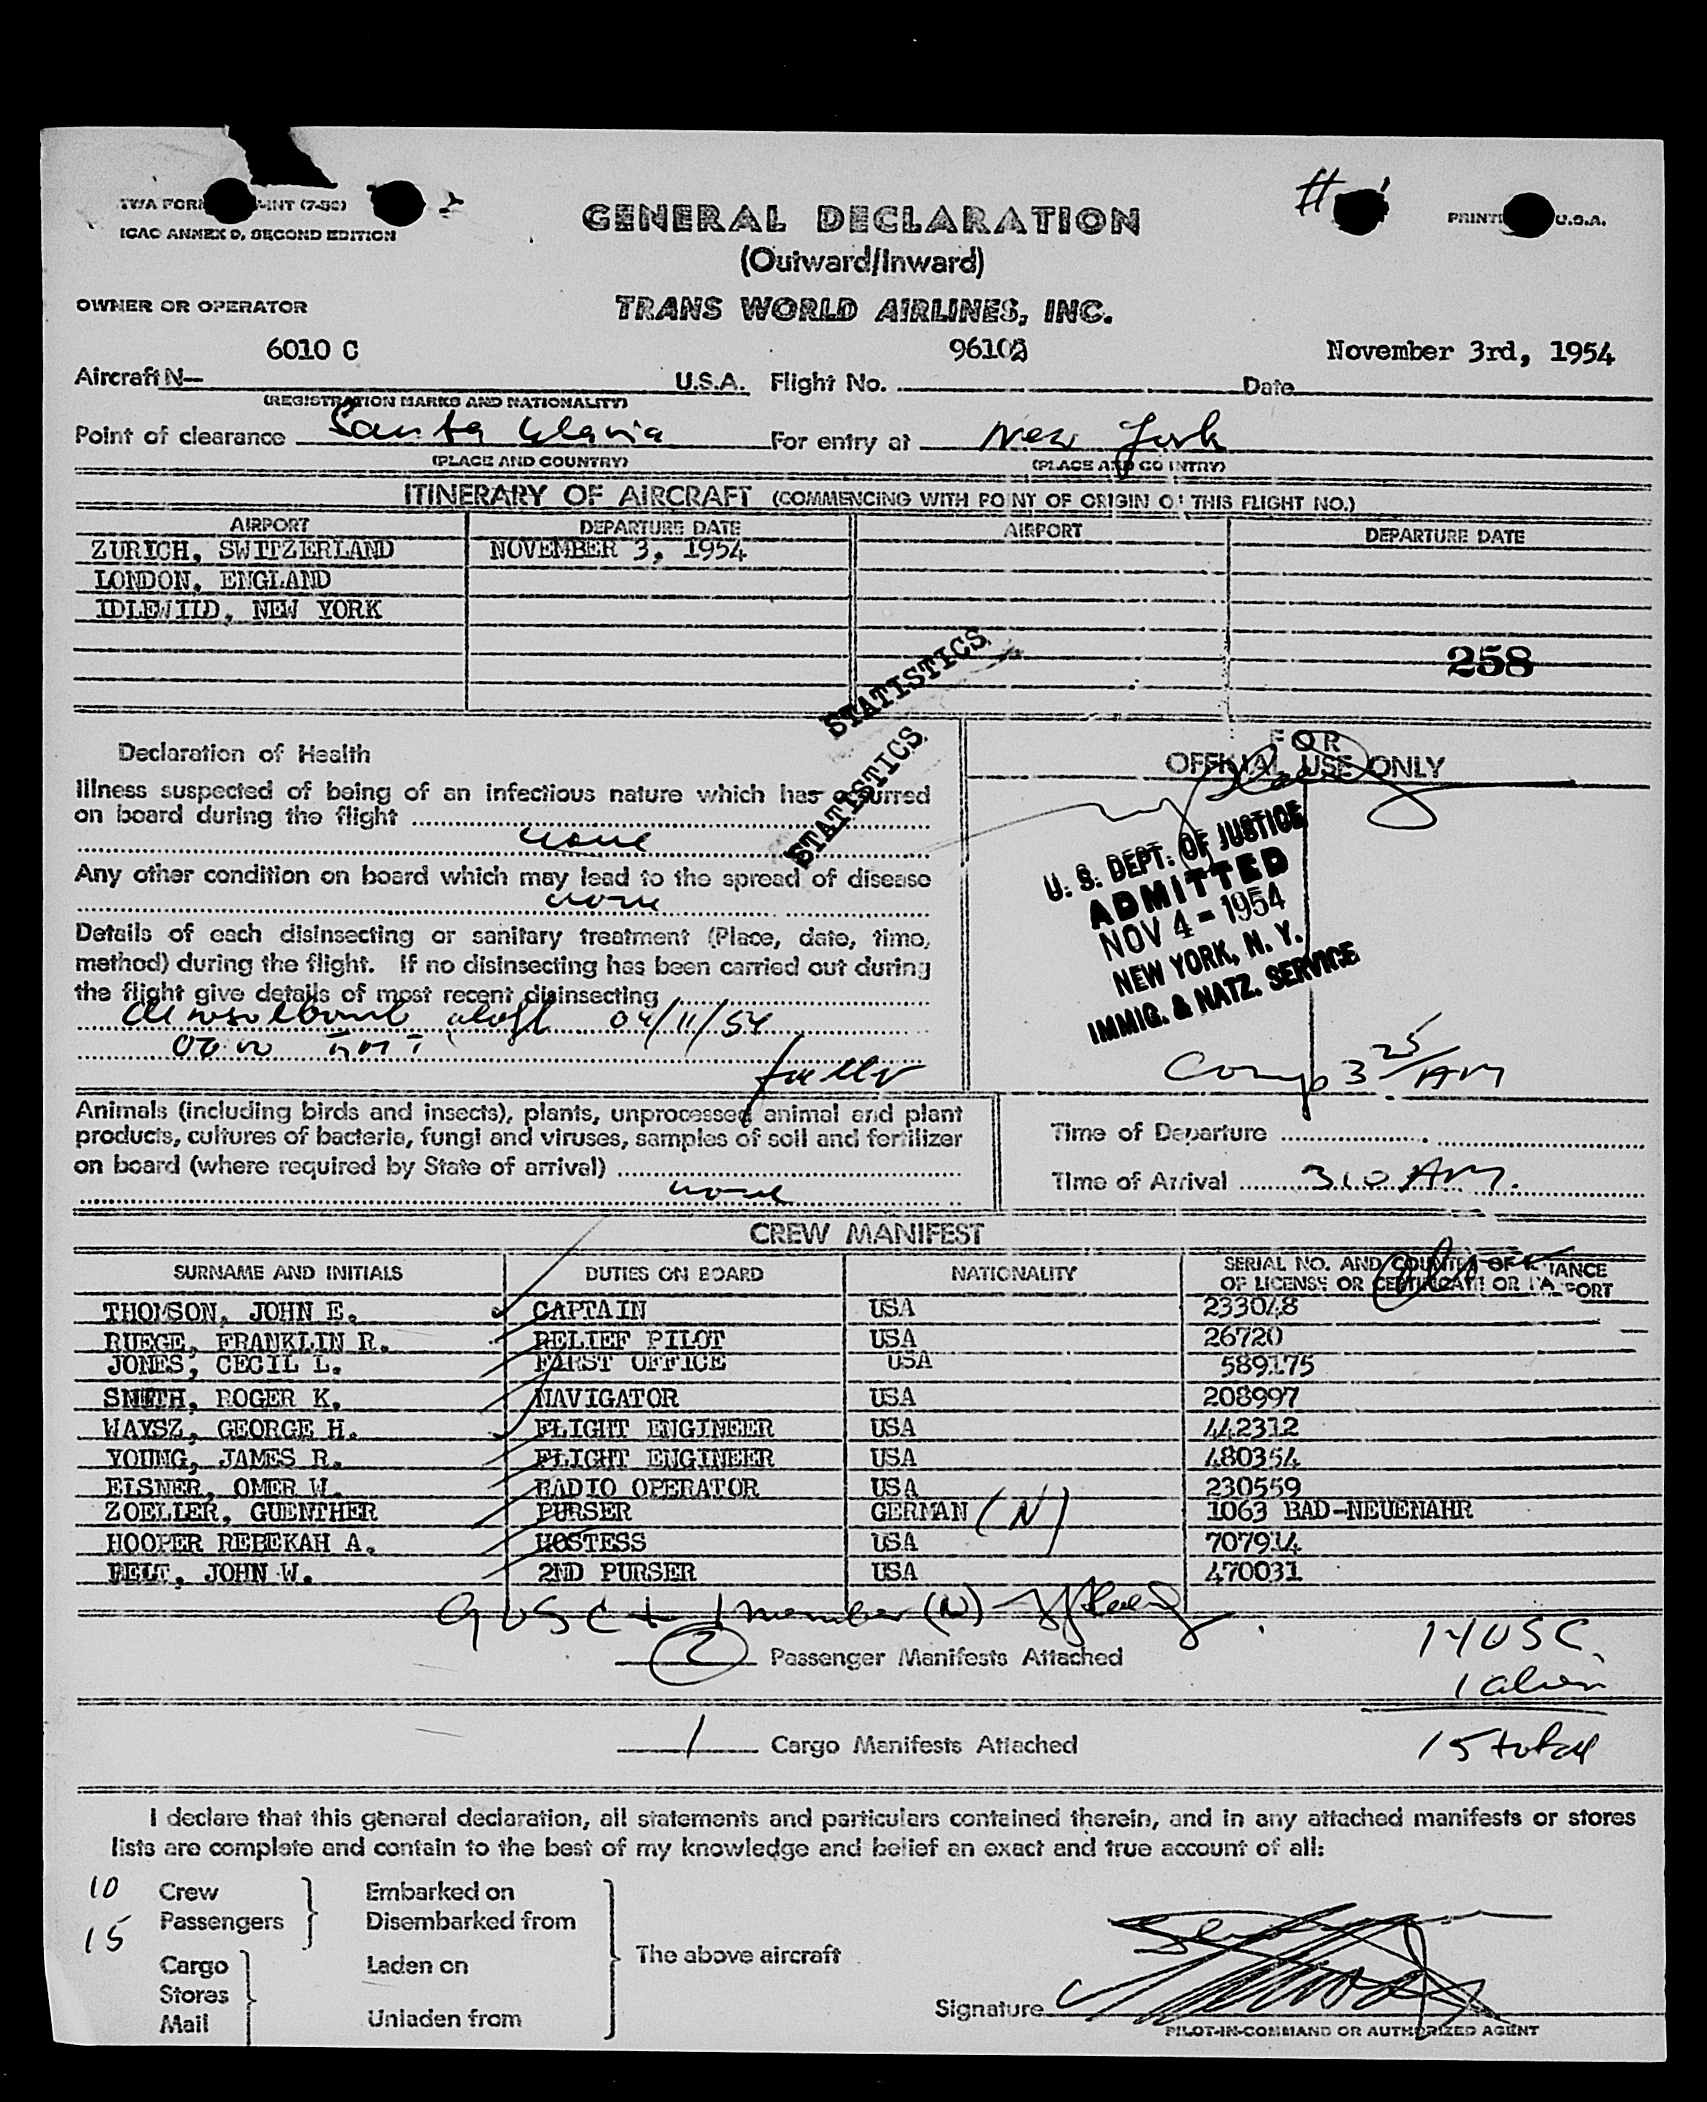 TWA FORM -INT (7-53)
ICAO ANNEX 9, SECOND EDITION
GENERAL DECLARATION
(Outward/Inward)
#
PRINTED U.S.A.
OWNER OR OPERATOR
TRANS WORLD AIRLINES, INC.
6010 C
November 3rd, 1954
Aircraft N— U.S.A. Flight No. Date
(REGISTRATION MARKS AND NATIONALITY)
Point of clearance Santa Maria For entry at New York
(PLACE AND COUNTRY) (PLACE AND COUNTRY)
ITINERARY OF AIRCRAFT (COMMENCING WITH POINT OF ORIGIN OF THIS FLIGHT NO.)
AIRPORT DEPARTURE DATE AIRPORT DEPARTURE DATE
ZURICH, SWITZERLAND NOVEMBER 3, 1954
LONDON, ENGLAND
IDLEWILD, NEW YORK
258
STATISTICS
STATISTICS
Declaration of Health
Illness suspected of being of an infectious nature which has occurred
on board during the flight
none
Any other condition on board which may lead to the spread of disease
none
Details of each disinsecting or sanitary treatment (Place, date, time,
method) during the flight. If no disinsecting has been carried out during
the flight give details of most recent disinsecting
aloft 04/11/54
FOR
OFFICIAL USE ONLY
U. S. DEPT. OF JUSTICE
ADMITTED
NOV 4 - 1954
NEW YORK, N. Y.
IMMIG. & NATZ. SERVICE
Comp 3 25/AM
Animals (including birds and insects), plants, unprocessed animal and plant
products, cultures of bacteria, fungi and viruses, samples of soil and fertilizer
on board (where required by State of arrival)
none
Time of Departure
Time of Arrival 310 AM.
CREW MANIFEST
SURNAME AND INITIALS DUTIES ON BOARD NATIONALITY SERIAL NO. AND COUNTRY OF ISSUANCE
OF LICENSE OR CERTIFICATE OR PASSPORT
THOMSON, JOHN E. CAPTAIN USA 233048
RUEGE, FRANKLIN R. RELIEF PILOT USA 26720
JONES, CECIL L. FIRST OFFICE USA 589175
SMITH, ROGER K. NAVIGATOR USA 208997
WAYSZ, GEORGE H. FLIGHT ENGINEER USA 442312
YOUNG, JAMES R. FLIGHT ENGINEER USA 480354
EISNER, OMER W. RADIO OPERATOR USA 230559
ZOELLER, GUENTHER PURSER GERMAN (N) 1063 BAD-NEUENAHR
HOOPER REBEKAH A. HOSTESS USA 707914
BELT, JOHN W. 2ND PURSER USA 470031
9 USC + 1 member (N)
2 Passenger Manifests Attached
14 USC
1 alien
1 Cargo Manifests Attached
15 total
I declare that this general declaration, all statements and particulars contained therein, and in any attached manifests or stores
lists are complete and contain to the best of my knowledge and belief an exact and true account of all:
10 Crew Embarked on
15 Passengers Disembarked from
The above aircraft
Cargo Laden on
Stores
Mail Unladen from
Signature
PILOT-IN-COMMAND OR AUTHORIZED AGENT